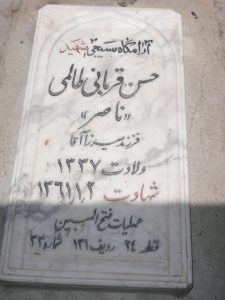 آرامگاه بسیجی شهید
حسن قربانی طالمی
«ناصر»
فرزند میرزاآقا
ولادت ۱۳۳۷
شهادت ۱۳۶۱/۱/۲
عملیات فتح المبین
قطعه ۲۴ ردیف ۱۳۱ شماره ۳۳